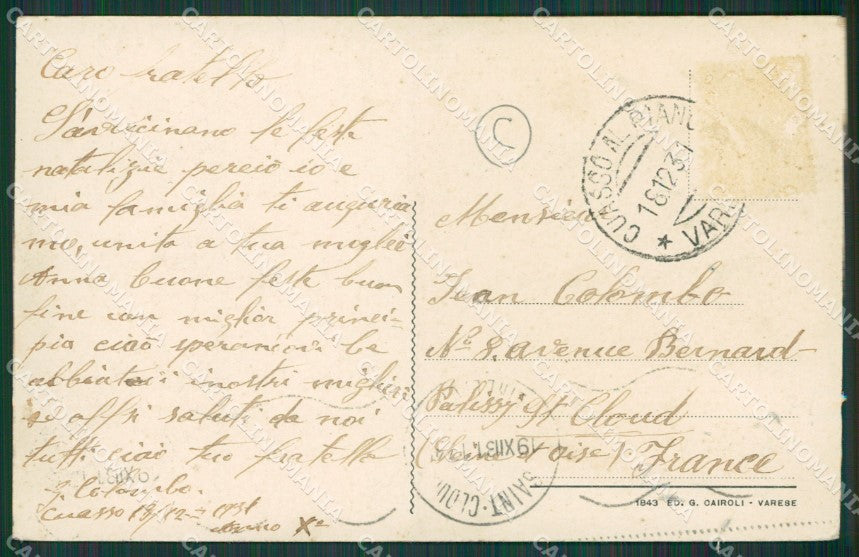 Caro fratello
S'avvicinano le feste
natalizie perciò io e
mia famiglia ti auguria
mo, unito a tua moglie
Anna buone feste buon
fine con miglior princi-
pio ciao
abbiatevi i nostri migliori
saluti da noi
tutti ciao tuo fratello
G. Colombo.
Cuasso 18/12 - 1931
anno Xº
C
CUASSO AL PIANO
18.12.31
VAR
Monsieu
Jean Colombo
Nº 8. avenue Bernard-
Palissy St Cloud
(Seine Oise) France
SAINT-CLOU
19 XII 31
1843 ED. G. CAIROLI - VARESE
CARTOLINOMANIA